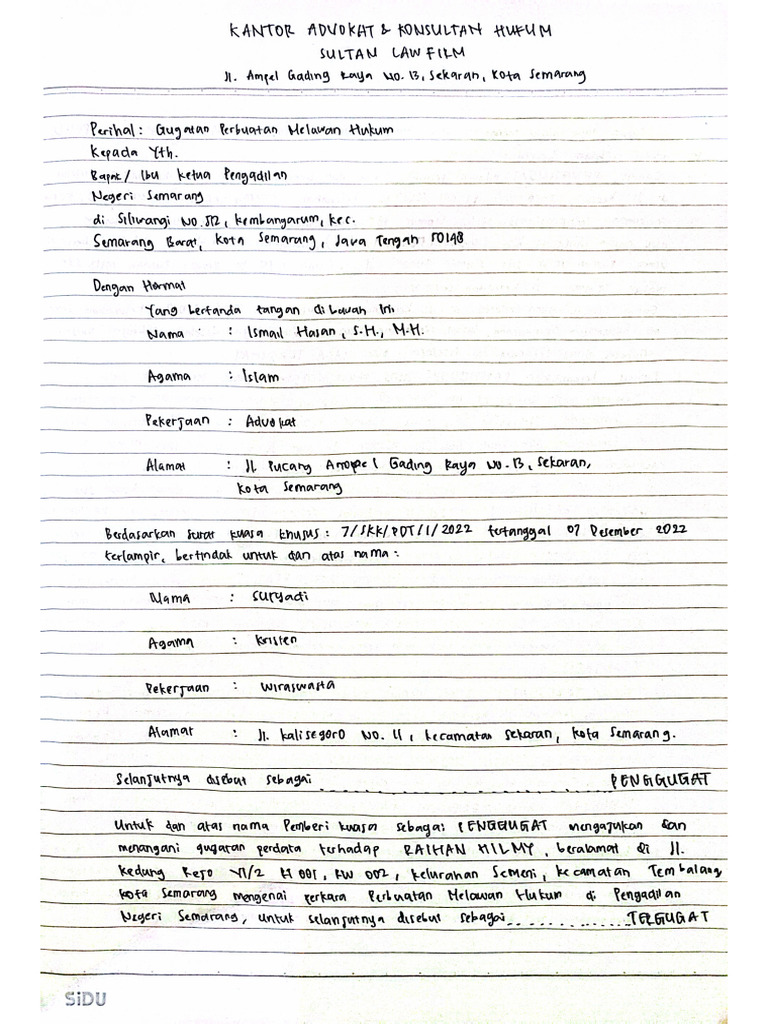 KANTOR ADVOKAT & KONSULTAN HUKUM
SULTAN LAW FIRM
Jl. Ampel Gading Raya No. 13, Sekaran, Kota Semarang
Perihal : Gugatan Perbuatan Melawan Hukum
Kepada Yth.
Bapak / Ibu Ketua Pengadilan
Negeri Semarang
di Siliwangi No. 512, Kembangarum, Kec.
Semarang Barat, Kota Semarang, Jawa Tengah 50148
Dengan Hormat
Yang bertanda tangan dibawah Ini
Nama : Ismail Hasan, S.H., M.H.
Agama : Islam
Pekerjaan : Advokat
Alamat : Jl. Pucang Gading Raya No. 13, Sekaran,
Kota Semarang
Berdasarkan surat kuasa khusus : 7/SKK/PDT/1/2022 tertanggal 07 Desember 2022
terlampir, bertindak untuk dan atas nama :
Nama : Suryadi
Agama : Kristen
Pekerjaan : Wiraswasta
Alamat : Jl. Kalisegoro No. 11, Kecamatan Sekaran, Kota Semarang.
Selanjutnya disebut sebagai .......................... PENGGUGAT
Untuk dan atas nama Pemberi Kuasa sebagai PENGGUGAT mengajukan dan
menangani gugatan perdata terhadap RAIHAN HILMY, beralamat di Jl.
Kedung Rejo VI/2 Rt 001, RW 002, Kelurahan Kecamatan Tembalang
Kota Semarang mengenai perkara Perbuatan Melawan Hukum di Pengadilan
Negeri Semarang, untuk selanjutnya disebut sebagai .............. TERGUGAT
SiDU